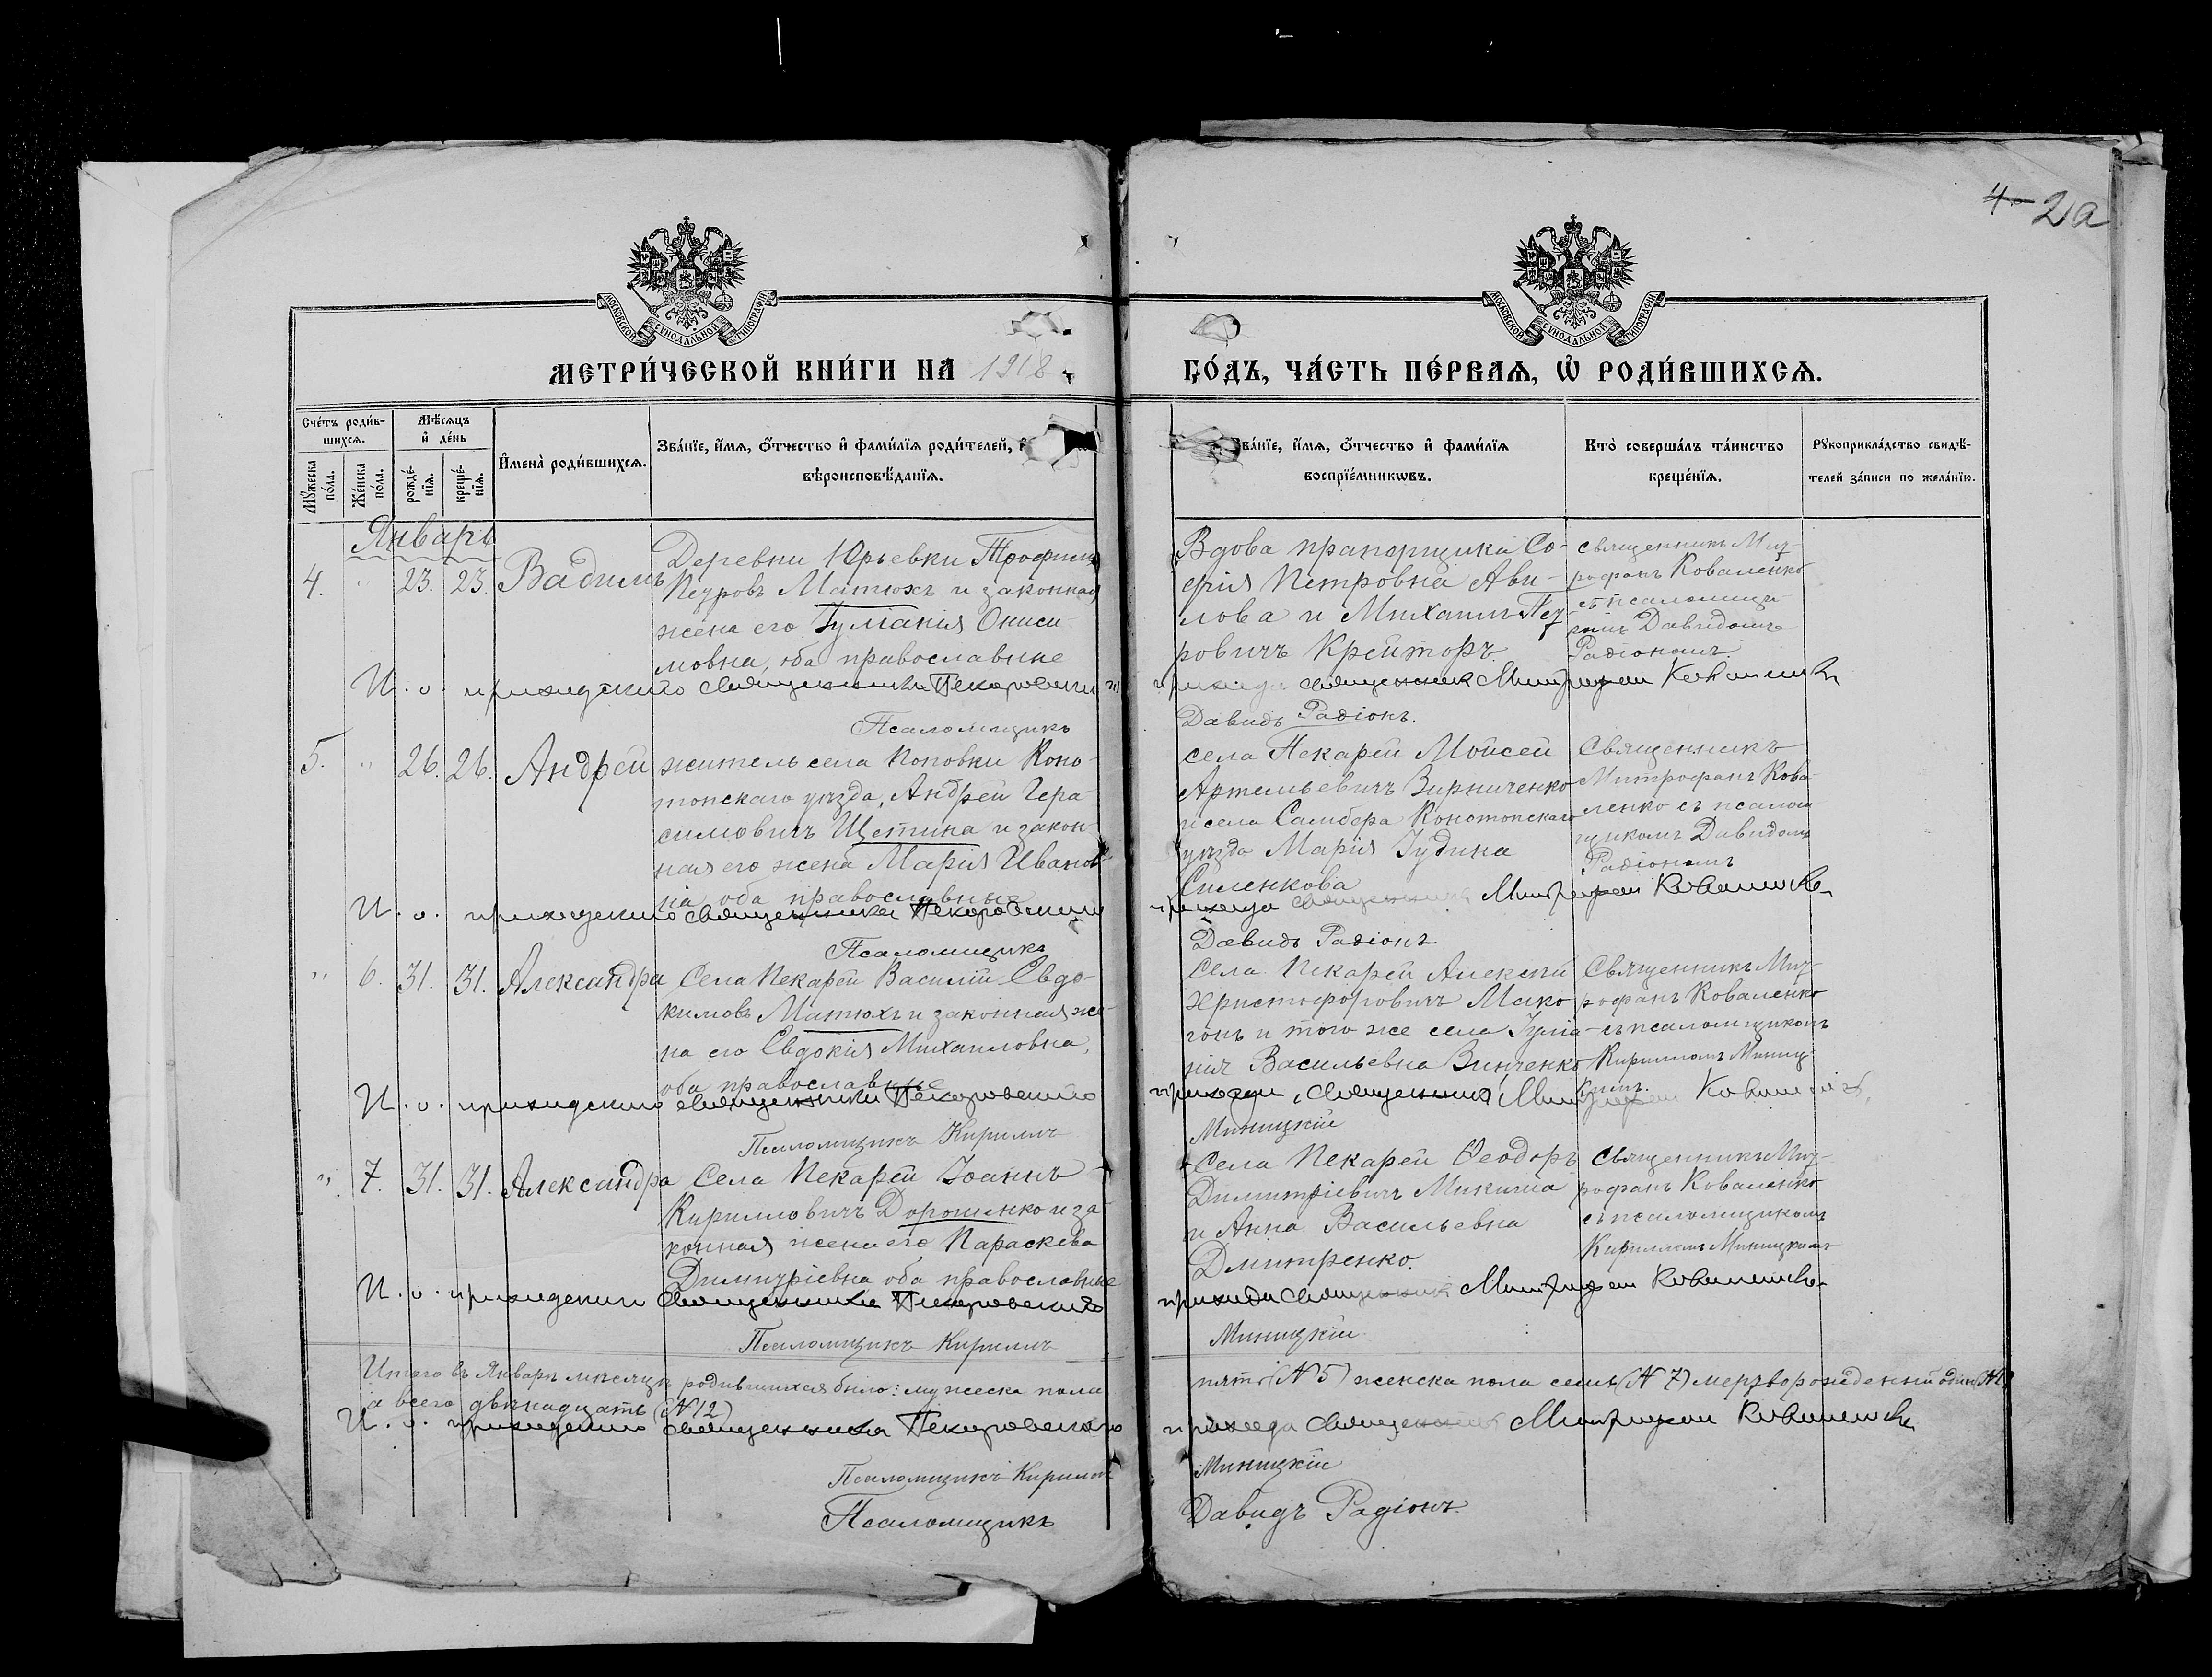 4 2а
МОСКОВСКОЙ СѴНОДАЛЬНОЙ ТИПОГРАФІИ
МОСКОВСКОЙ СѴНОДАЛЬНОЙ ТИПОГРАФІИ
МЕТРИ́ЧЕСКОЙ КНИ́ГИ НА 1918 ГО́ДЪ, ЧА́СТЬ ПЕ́РВАѦ, Ѡ҆ РОДИ́ВШИХСѦ.
Счéтъ роди́в-
шихсѧ.
Мꙋжеска по́ла.
Же́нска по́ла.
Мѣ́сѧцъ
и҆ де́нь
рожде́-
нїѧ.
креще́-
нїѧ.
И҆мена̀ роди́вшихсѧ.
Зва́нїе, и҆́мѧ, ѻ҆́тчество и҆ фами́лїѧ роди́телей, и҆
вѣроисповѣ́данїѧ.
Зва́нїе, и҆́мѧ, ѻ҆́тчество и҆ фами́лїѧ
воспрїе́мникѡвъ.
Кто̀ соверша́лъ та́инство
креще́нїѧ.
Рꙋкоприкла́дство свидѣ́-
телей за́писи по жела́нїю.
Январь
4. " 23. 23. Вадимъ
Деревни Юрьевки Трофимъ
Петровъ Матюхъ и законная
жена его Іуліанія Ониси-
мовна, оба православные
Вдова прапорщика Со-
фія Петровна Ави-
лова и Михаилъ Пет-
ровичъ Крейторъ.
священникъ Мит-
рофанъ Коваленко
съ псаломщи-
комъ Давидомъ
Радіономъ.
И. о. приходскаго священника Покровскаго прихода священникъ Митрофан Коваленко
Псаломщикъ Давидъ Радіонъ.
5. " 26. 26. Андрей
житель села Поповки Коно-
топскаго уѣзда, Андрей Гера-
симовичъ Щетина и закон-
ная его жена Марія Иванов-
на оба православные
села Пекарей Моисей
Артемьевичъ Зирниченко
и села Самбора Конотопскаго
уѣзда Марія Іудина
Силенкова
Священникъ
Митрофанъ Кова-
ленко съ псалом
щикомъ Давидомъ
Радіономъ
И. о. приходскаго священника Покровскаго прихода священникъ Митрофан Коваленко
Псаломщикъ Давидъ Радіонъ
" 6. 31. 31. Александра
Села Пекарей Василій Евдо-
кимовъ Матюхъ и законная же-
на его Евдокія Михаиловна,
оба православные
Села Пекарей Алексій
Христофоровичъ Мако
гонъ и того же села Іуліа-
нія Васильевна Зинченко
Священникъ Мит-
рофанъ Коваленко
съ псаломщикомъ
Кирилломъ Миниц
кимъ.
И. о. приходскаго священника Покровскаго прихода, священникъ Митрофан Коваленко
Псаломщикъ Кириллъ Миницкій
" 7. 31. 31. Александра
Села Пекарей Іоаннъ
Кирилловичъ Дорошенко и за-
конная жена его Параскева
Димитріевна оба православные
Села Пекарей Ѳеодоръ
Димитріевичъ Микитта
и Анна Васильевна
Дмитренко.
священникъ Мит-
рофанъ Коваленко
съ псаломщикомъ
Кирилломъ Миницкимъ
И. о. приходскаго священника Покровскаго прихода священникъ Митрофан Коваленко
Псаломщикъ Кириллъ Миницкій
Итого въ Январѣ мѣсяцѣ родившихся было: мужеска пола пять (№ 5) женска пола семь (№ 7) мертворожденный одинъ (№ 1)
а всего двѣнадцать (№ 12)
И. о. приходскаго священника Покровскаго прихода священникъ Митрофан Коваленко
Псаломщикъ Кириллъ Миницкій
Псаломщикъ Давидъ Радіонъ